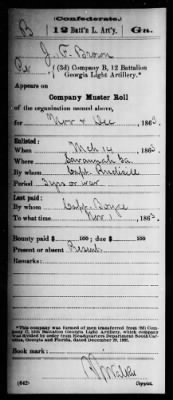 (Confederate.)
B 12 Batt'n L. Art'y. Ga.
J. F. Brown
(3d) Company B, 12 Battalion
Georgia Light Artillery.*
Appears on
Company Muster Roll
of the organization named above,
for Nov & Dec, 186
Enlisted:
When Mch 14, 186
Where Savannah Ga.
By whom Capt.
Period 3 yrs or war
Last paid:
By whom Capt.
To what time Nov 1, 186
Bounty paid $ 100; due $ 100
Present or absent Present
Remarks:
*This company was formed of men transferred from
Company 12th Battalion Georgia Light Artillery, which company was
divided by order from Headquarters Department South Carolina,
Georgia and Florida, dated December
Book mark:
(642) Copyist.